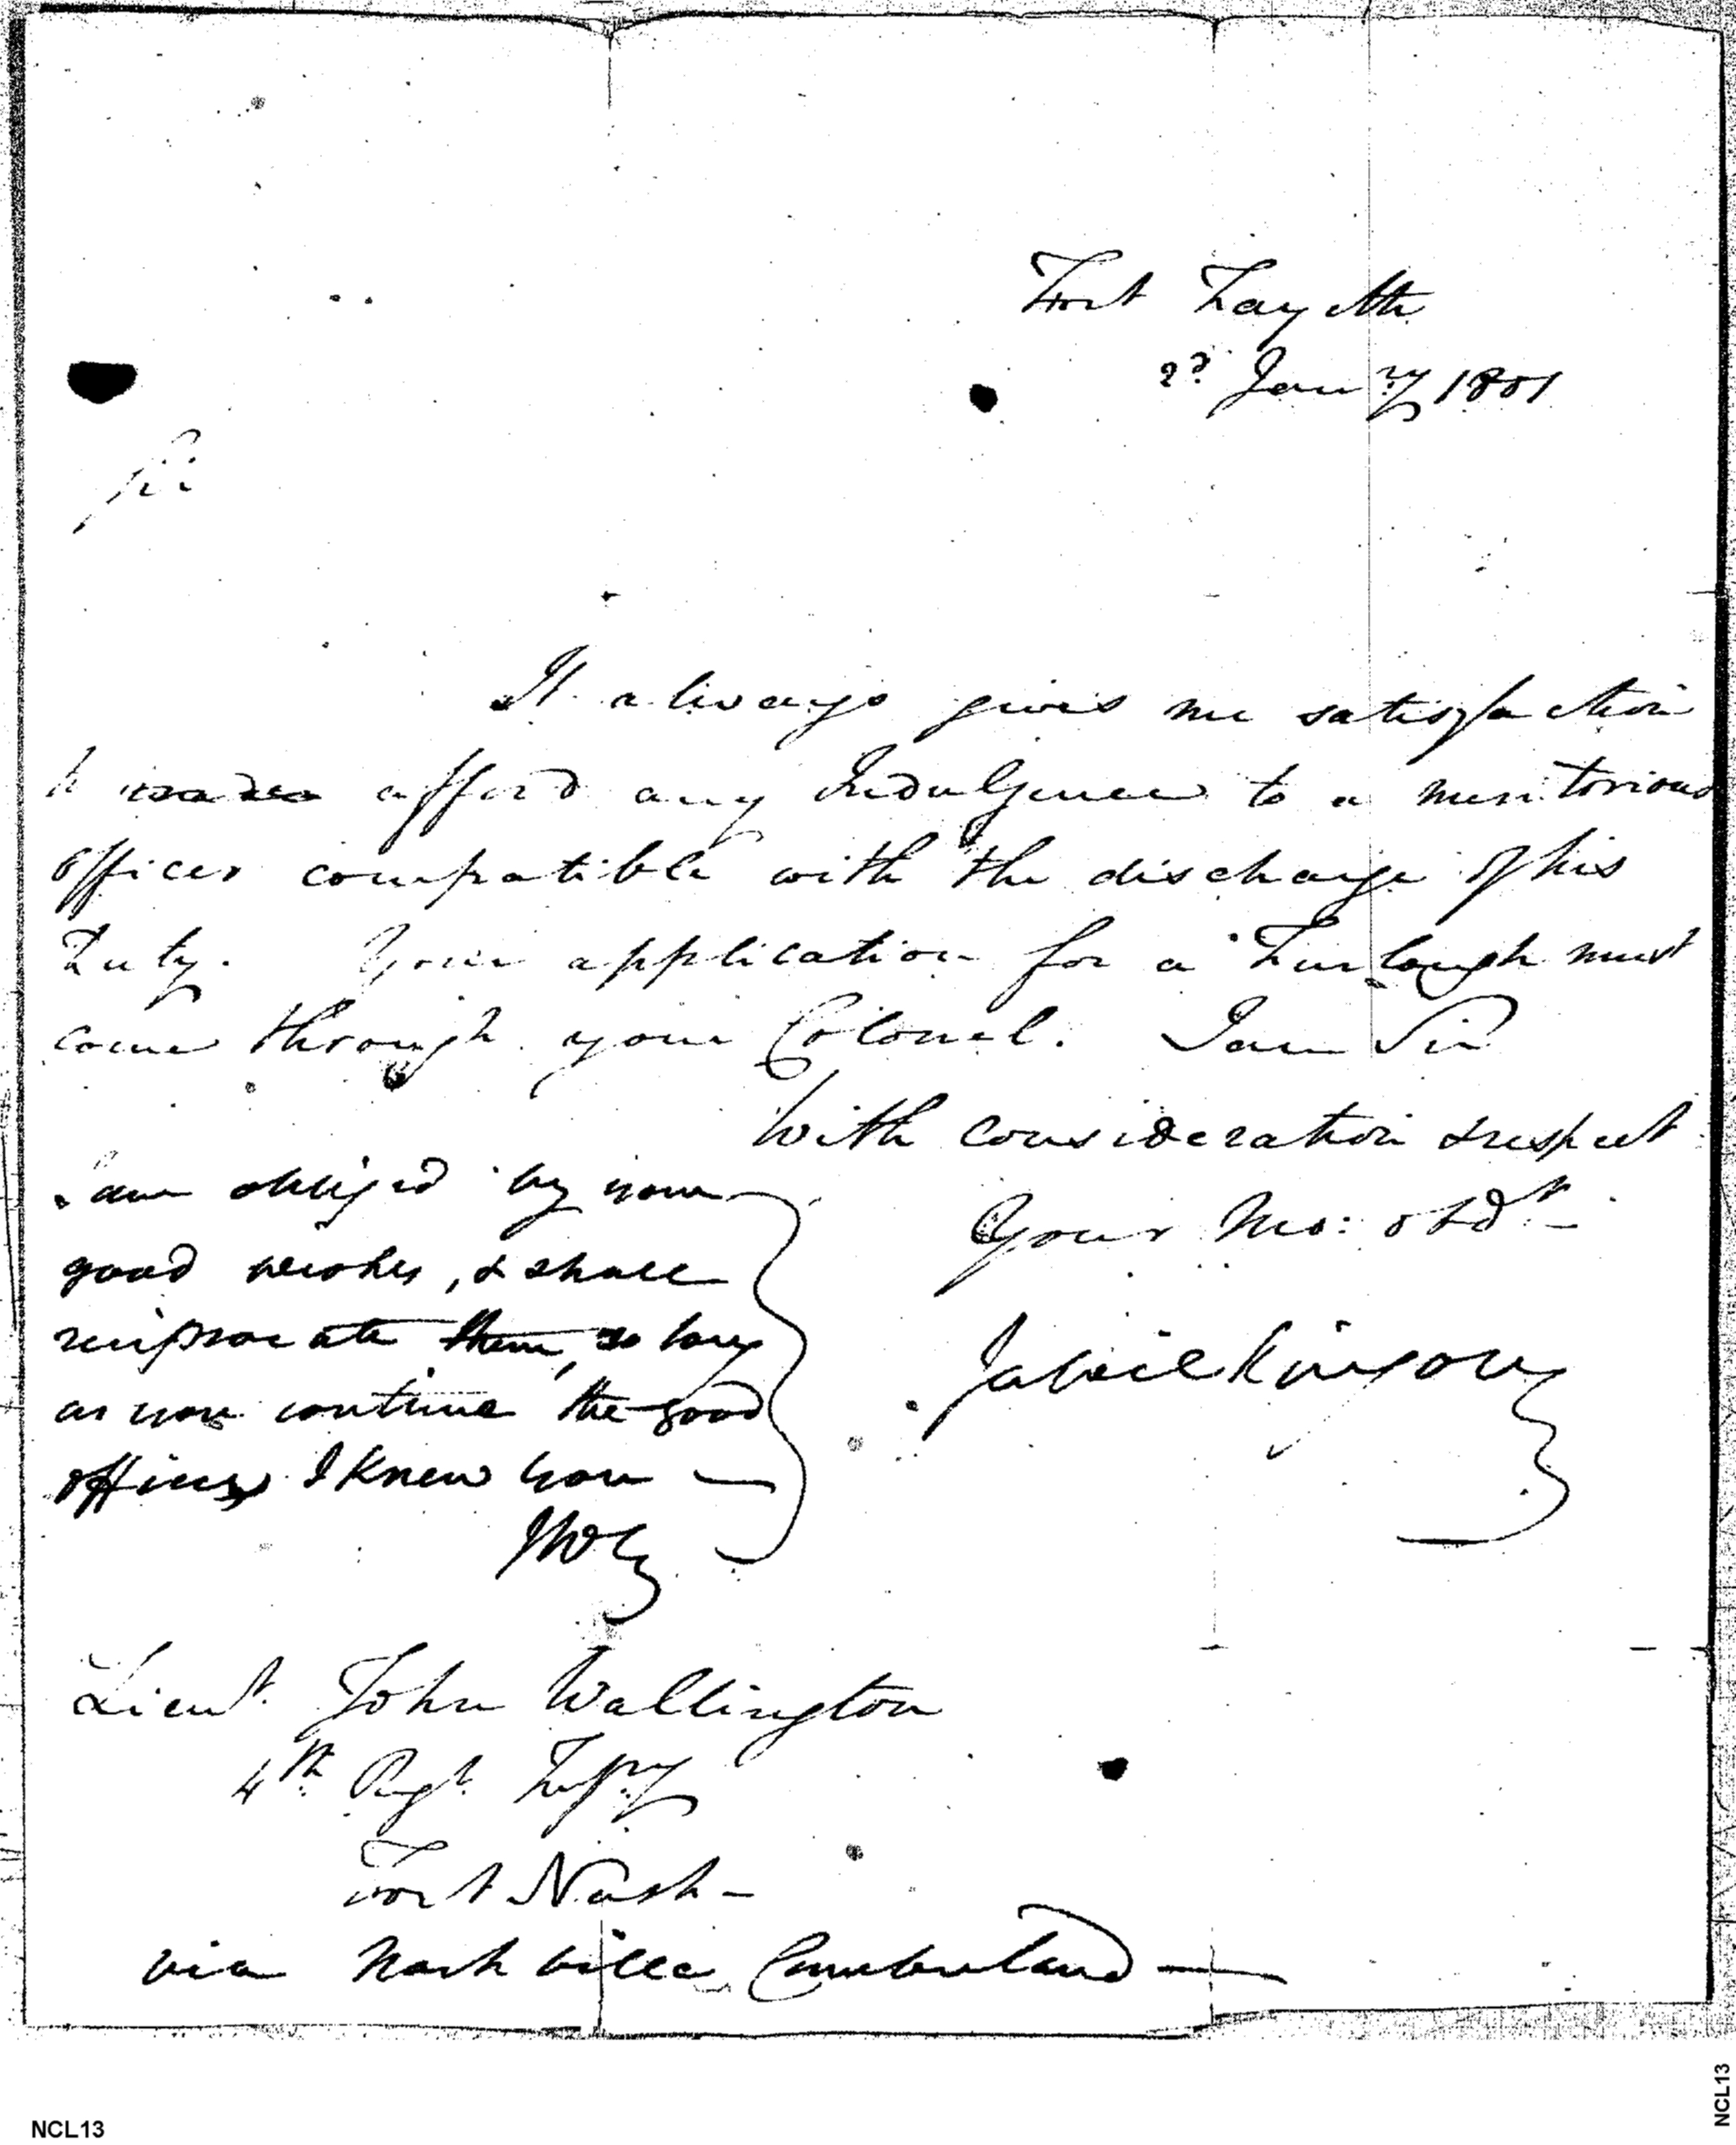 Fort Fayette
2d Jany 1801
Sir
It always gives me satisfaction
to afford any Indulgence to a meritorious
officer compatible with the discharge of his
Duty. Your application for a Furlough must
come through your Colonel. I am Sir
With consideration & respect
Your Mo: obdt
JaWilkinson
I am obliged by your
good wishes, & shall
reciprocate them, so long
as you continue the good
officer I knew you —
JW
Lieut. John Wallington
4th Regt. Infry
Fort Nash –
via Nashville Cumberland —
NCL13
NCL13